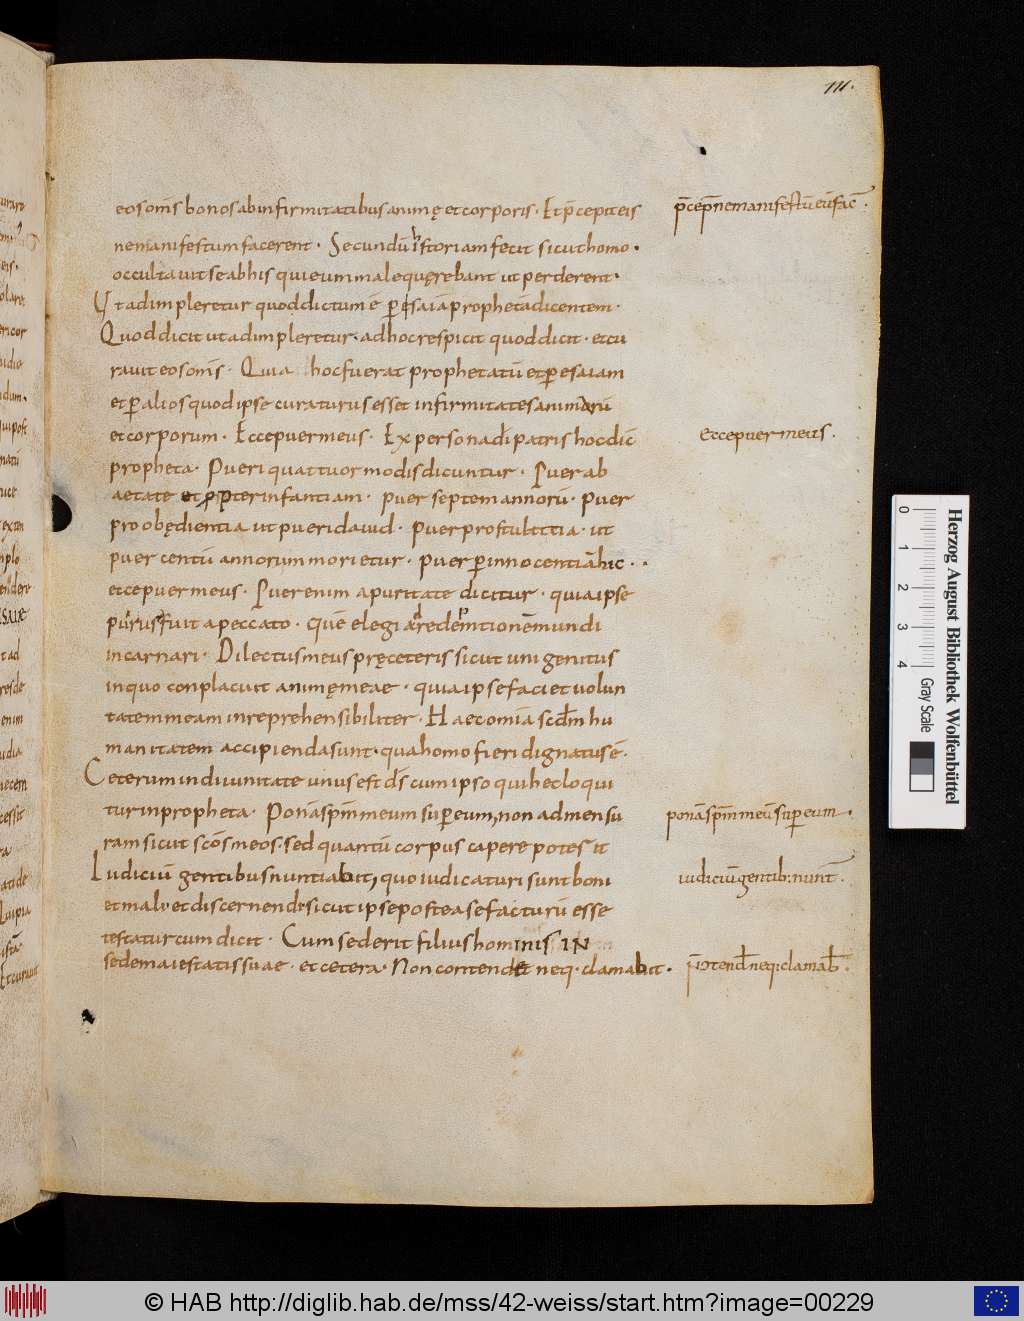 111.
eos om̄s bonos ab infirmitatibus animę et corporis. Et p̄cepit eis
p̄cep̄ ne manifestū eū fac̄.
ne manifestum facerent. Secundū hystoriam fecit sicut homo.
occultavit se ab his qui eum male quęrebant ut perderent.
Ut adimpleretur quod dictum ē ꝑ esaiā prophetā dicentem.
Quod dicit ut adimpleretur. ad hoc respicit quod dicit. et cu
ravit eos om̄s. Quia hoc fuerat prophetatū et ꝑ esaiam
et ꝑ alios quod ipse curaturus esset infirmitates animarū
et corporum. Ecce puer meus. Ex persona dī patris hoc dic̄
Ecce puer meus.
propheta. Pueri quattuor modis dicuntur. Puer ab
aetate et propter infantiam. puer septem annorū. puer
pro obędientia ut pueri david. puer pro stultitia. ut
puer centū annorum morietur. puer ꝑ innocentiā hic..
ecce puer meus. Puer enim a puritate dicitur. quia ipse
purus fuit a peccato. quē elegi ad redemptionē mundi
incarnari. Dilectus meus pręceteris sicut unigenitus
in quo conplacuit animę meae. quia ipse faciet volun
tatem meam inreprehensibiliter. Haec omīa scdm hu
manitatem accipienda sunt. qua homo fieri dignatus ē.
Ceterum in divinitate unus est ds̄ cum ipso qui hec loqui
tur in propheta. Ponā sp̄m meum super eum, non ad mensu
ponā sp̄m meū suꝑ eum.
ram sicut scōs meos. sed quantū corpus capere potest
Iudiciū gentibus nuntiabit, quo iudicaturi sunt boni
iudiciū gentib: nunt̄.
et mali et discernendi sicut ipse postea se facturū esse
testatur cum dicit. Cum sederit filius hominis IN
sede maiestatis suae. et cetera. Non contendet neq. clamabit.
n̄ ↄtend̄ neq: clamab̄.
0 1 2 3 4
Gray Scale
Herzog August Bibliothek Wolfenbüttel
© HAB http://diglib.hab.de/mss/42-weiss/start.htm?image=00229